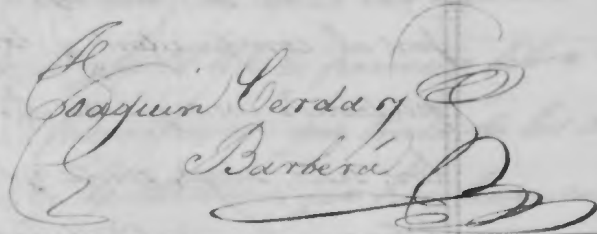 Joaquin Cerda y
Barberá